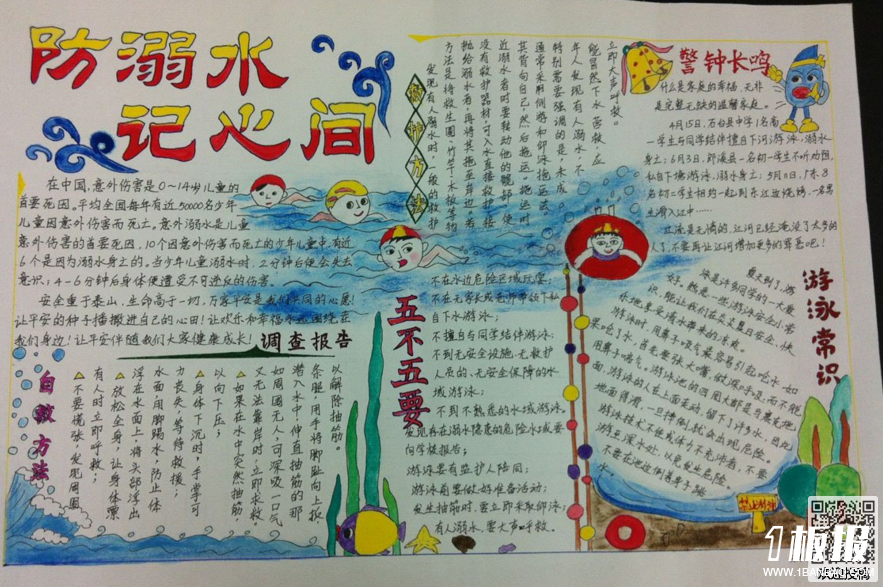 防溺水
记心间
在中国,意外伤害是0~14岁儿童的
首要死因。平均全国每年有近50000名少年
儿童因意外伤害而死亡。意外溺水是儿童
意外伤害的首要死因。10个因意外伤害而死亡的少年儿童中,有近
6个是因为溺水身亡的。当少年儿童溺水时,2分钟后便会失去
意识;4-6分钟后身体便遭受不可逆反的伤害。
安全重于泰山,生命高于一切,万家平安是我们共同的心愿!
让平安的种子播撒进自己的心田!让欢乐和幸福永远围绕在
我们身边!让平安伴随我们大家健康成长!
调查报告
救护方法
发现有人溺水时,一般的救护
方法是将救生圈、竹竿、木板等物
抛给溺水者,再将其拖至岸边;若
没有救护器材,可入水直接救护,接
近溺水者时要转动他的髋部,使
其背向自己,然后拖运。拖运时
通常采用侧游和仰泳拖运法。
特别需要强调的是,未成
年人发现有人溺水,不
能冒然下水营救,应
立即大声呼救。
警钟长鸣
什么是家庭的幸福,无非
是完整无缺的温馨家庭。
4月15日,石台县中学1名高
一学生与同学结伴擅自下河游泳,溺水
身亡;6月3日,郎溪县一名初一学生不听劝阻,
私自下塘游泳,溺水身亡;
江流是无情的,江河已经淹没了太多的
人了,不要再让江河增加更多的罪恶吧!
五不五要
不在水边危险区域玩耍;
不在无家长或老师带领下私
自下水游泳;
不擅自与同学结伴游泳;
不到无安全设施、无救护
人员的、无安全保障的水
域游泳;
不到不熟悉的水域游泳。
发现存在溺水隐患的危险水域要
向学校报告;
游泳要有监护人陪同;
游泳前要做好准备活动;
发生抽筋时,要立即采取仰泳;
有人溺水,要大声呼救。
游泳常识
夏天到了,游
泳是许多同学的一大爱
好。熟悉一些游泳安全小常
识,能让我们在炎炎夏日安全、快
乐地享受清水带来的清爽。
游泳时,用鼻子吸气最容易引起呛水,如
果呛了水,首先要张大嘴,做深呼吸;而不能
用鼻子喘气。游泳池的四周大都是马赛克地
面,游泳的人在上面走动,留下了许多水,因此
地面很滑,一旦摔倒,就会出现危险。
游泳技术不佳或体力不充沛者,不要
游至深水处,以免发生危险。
不要在池边倒着身子跳
水。
禁止游泳
自救方法
不要慌张,发现周围
有人时立即呼救;
放松全身,让身体漂
浮在水面上,将头部浮出
水面,用脚踢水,防止体
力丧失,等待救援;
身体下沉时,手掌可
以向下压;
如果在水中突然抽筋
又无法靠岸时,立即求救
如周围无人,可深吸一口气
潜入水中,伸直抽筋的那
条腿,用手将脚趾向上扳,
以解除抽筋。
1板报
WWW.1BANBAO.COM
欢迎投稿